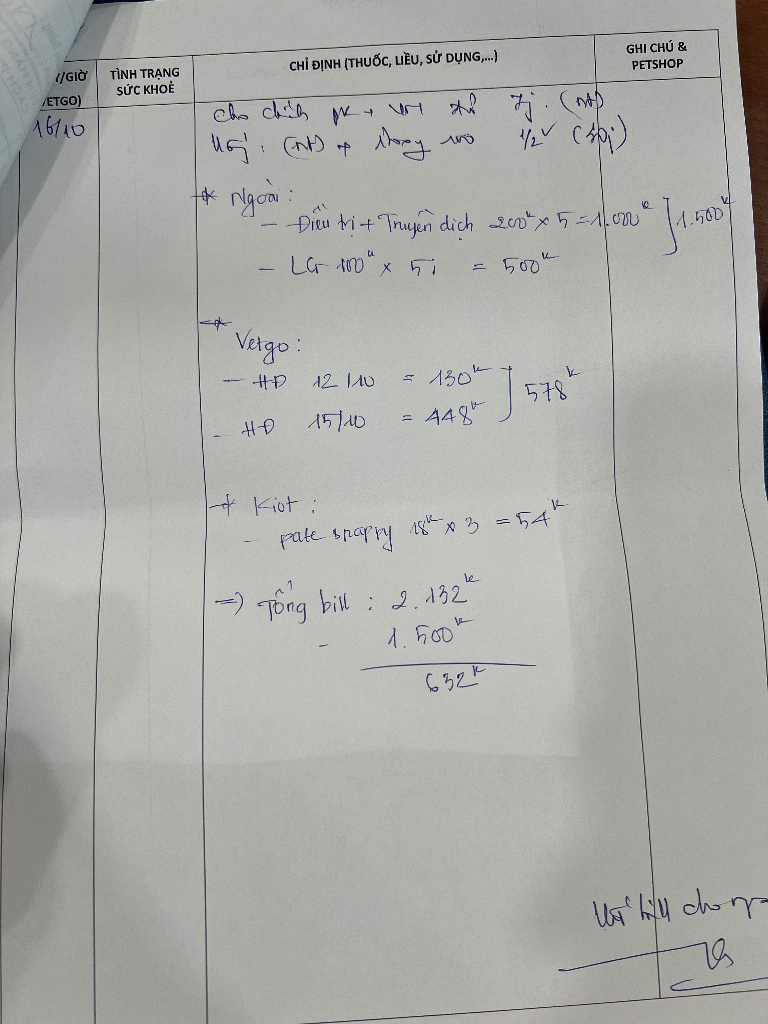 /GIỜ
ETGO)
TÌNH TRẠNG
SỨC KHOẺ
CHỈ ĐỊNH (THUỐC, LIỀU, SỬ DỤNG,...)
GHI CHÚ &
PETSHOP
16/10
cho
1/2
* Ngoài:
- Điều trị + Truyền dịch 200k x 5 = 1.000k ] 1.500k
- LG 100k x 5j = 500k
* Vetgo:
- HĐ 12/10 = 130k ] 578k
- HĐ 15/10 = 448k
* Kiot:
- pate snappy 18k x 3 = 54k
=> Tổng bill : 2.132k
- 1.500k
632k
bill cho